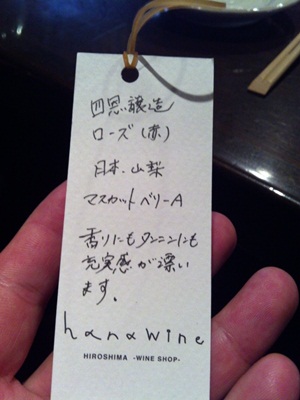 四恩醸造
ローズ(赤)
日本.山梨
マスカットベリーA
香りにもタンニンにも
充実感が漂い
ます。
hanawine
HIROSHIMA -WINE SHOP-